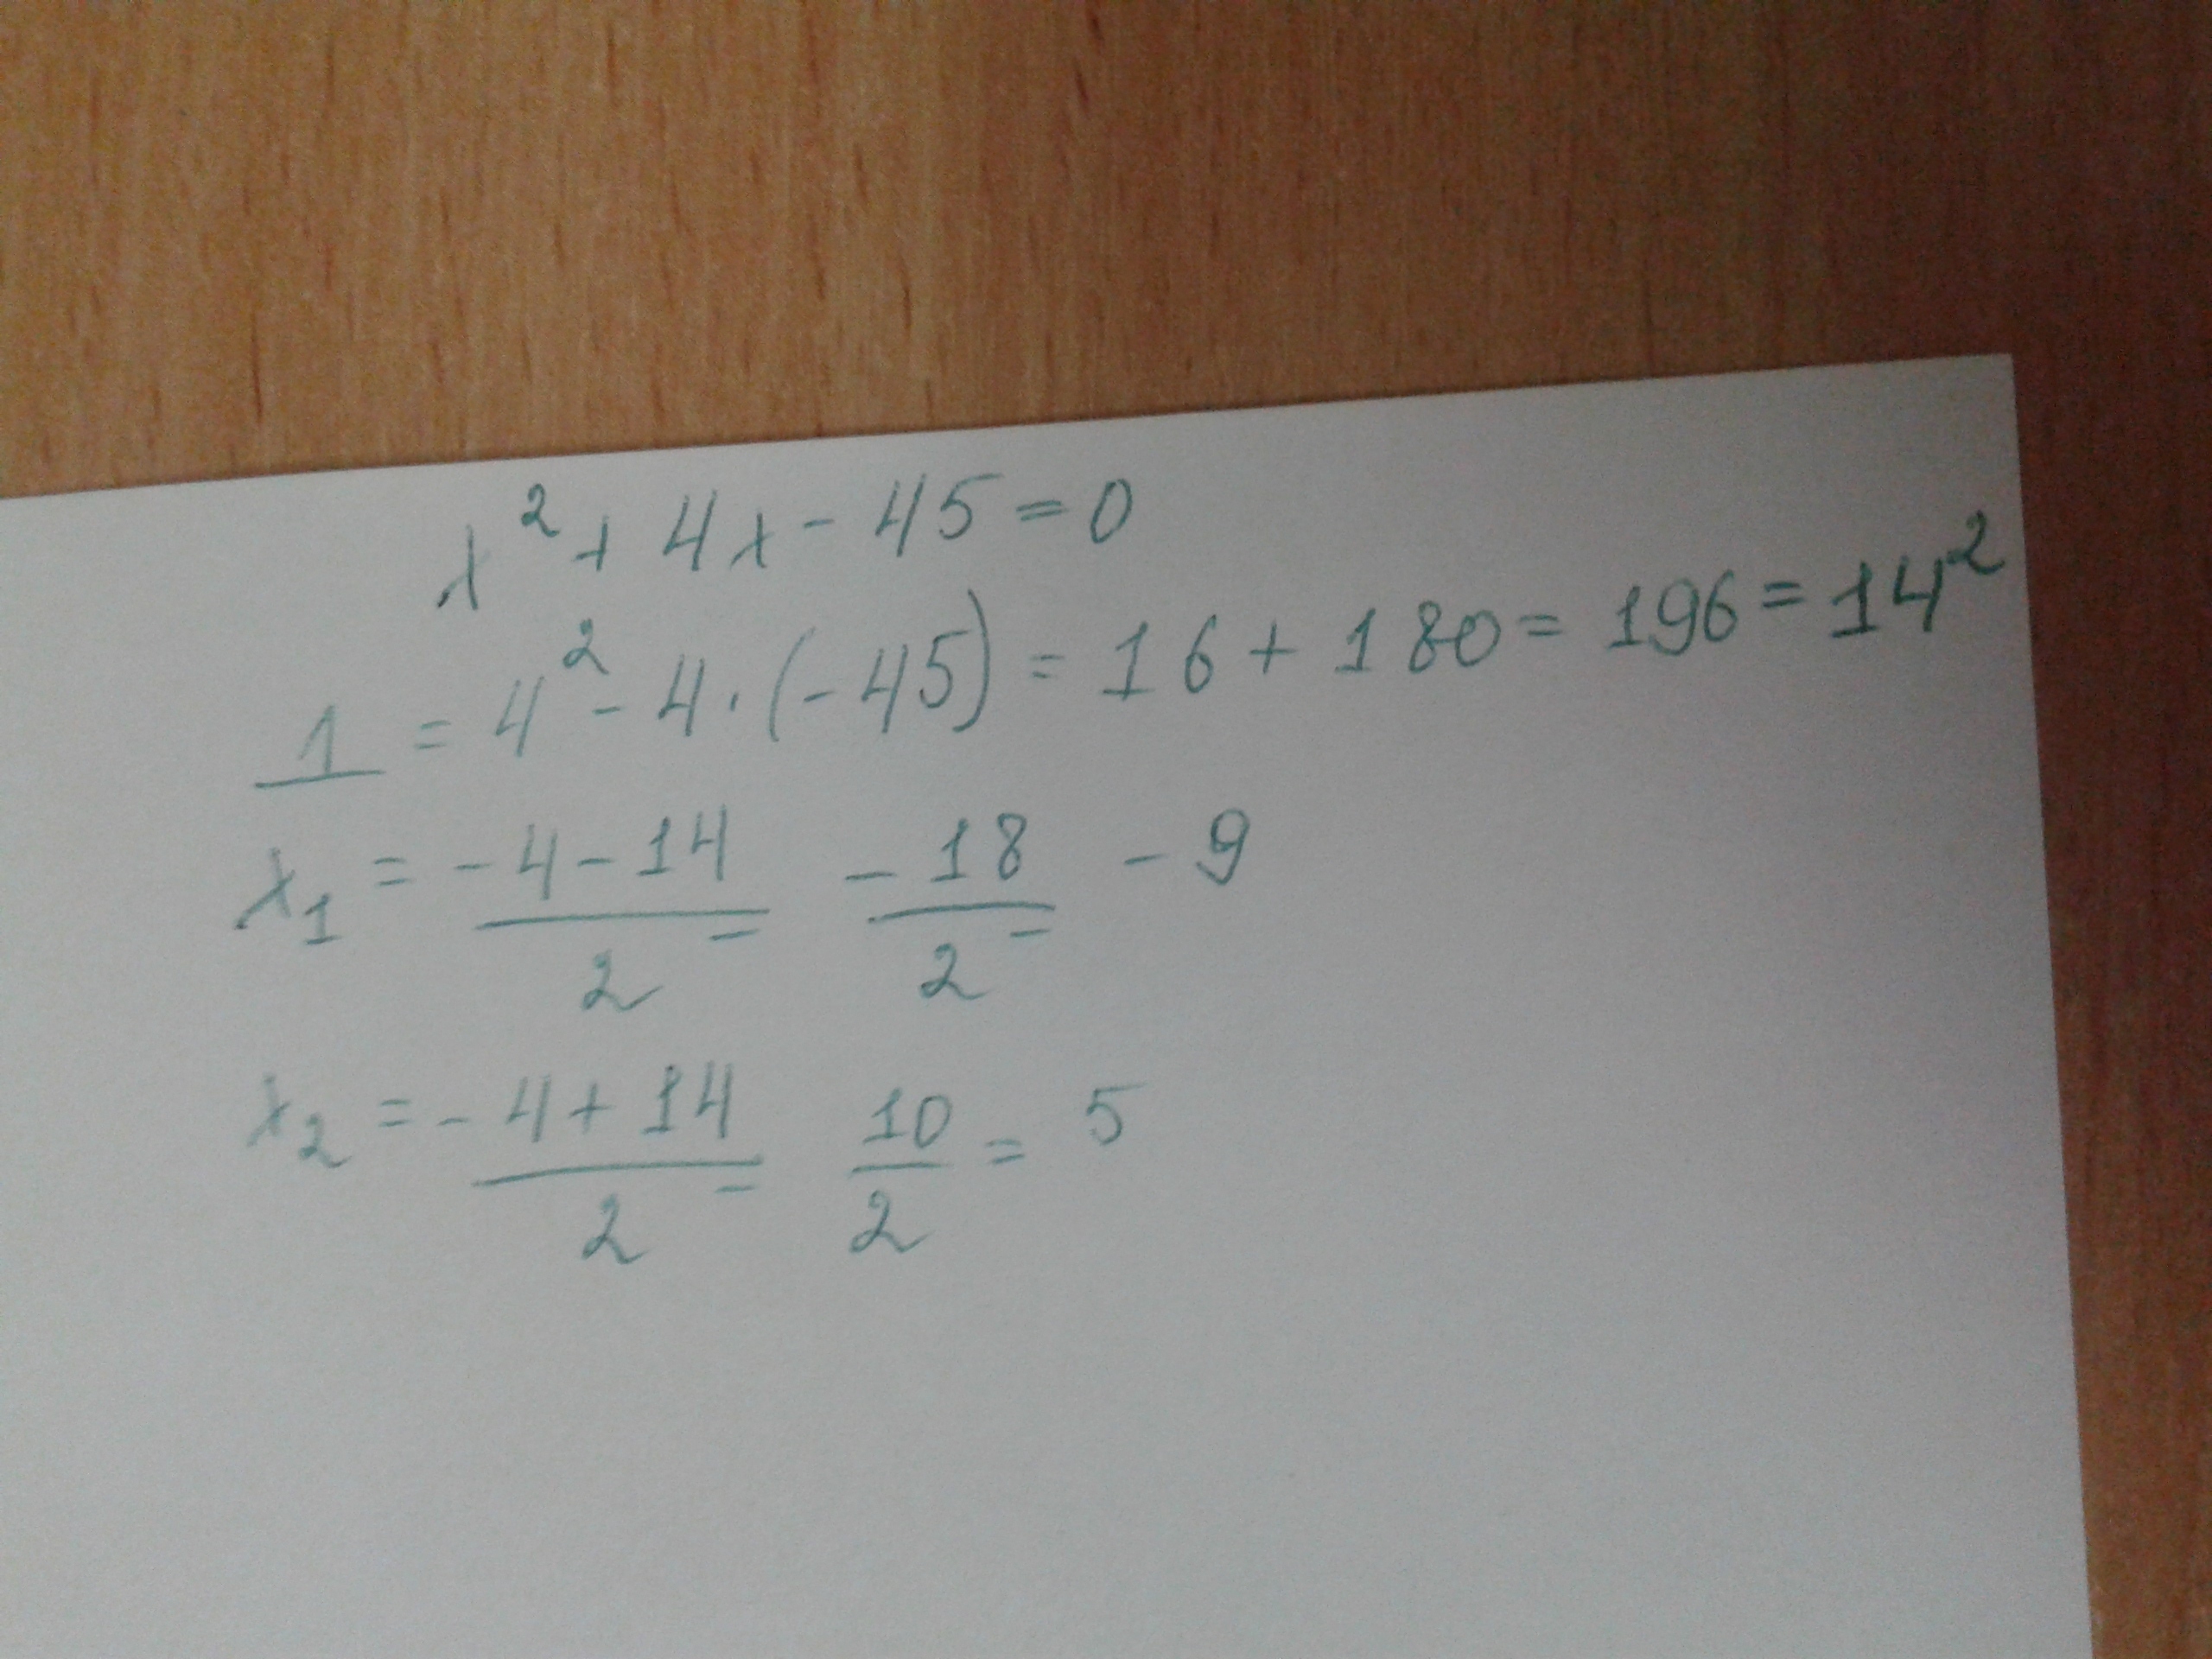 x² + 4x - 45 = 0
1 = 4² - 4 · (-45) = 16 + 180 = 196 = 14²
x₁ = -4 - 14 / 2 = -18 / 2 = -9
x₂ = -4 + 14 / 2 = 10 / 2 = 5